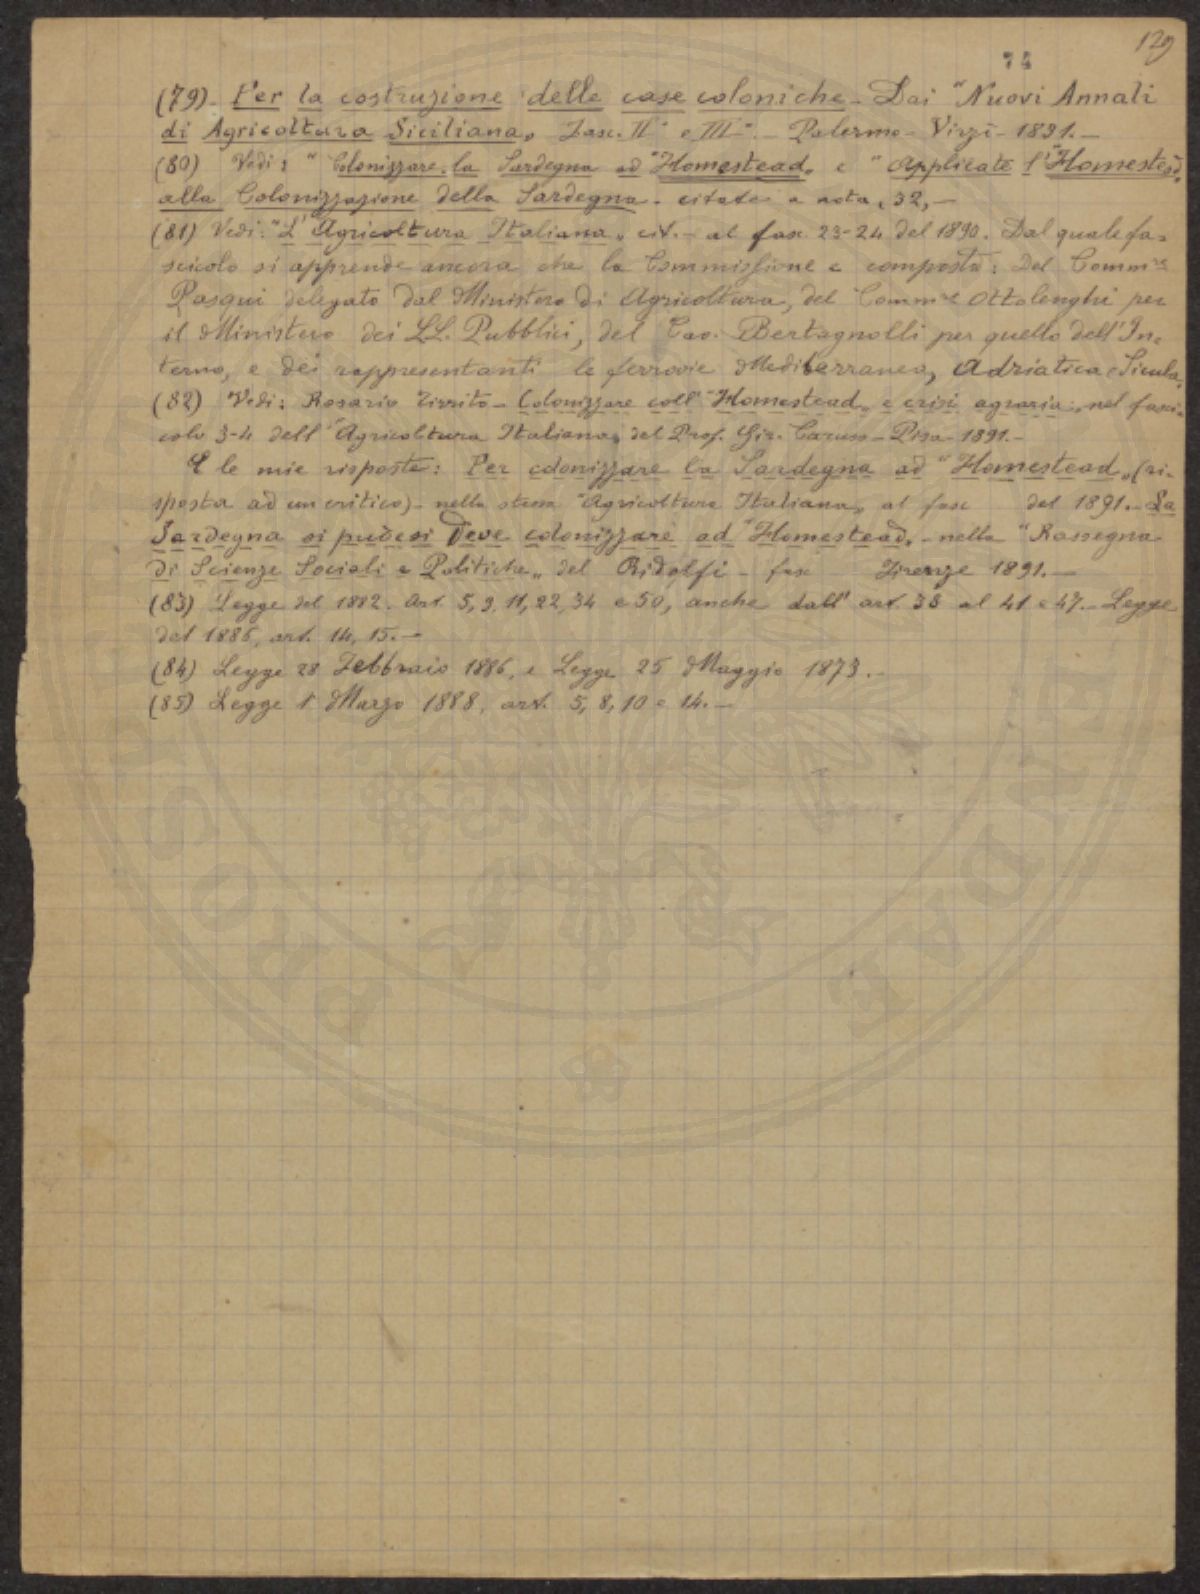 129
74
(79)- Per la costruzione delle case coloniche - Dai "Nuovi Annali
di Agricoltura Siciliana„ Fasc. II° e III° - Palermo - Virzì - 1891.-
(80) Vedi: "Colonizzare la Sardegna ad "Homestead„ e "Applicate l'"Homestead„
alla Colonizzazione della Sardegna - citate a nota, 32,-
(81) Vedi: "L'Agricoltura Italiana„ cit. - al fasc. 23-24 del 1890. Dal quale fa-
scicolo si apprende ancora che la Commissione è composta: Del Comm.re
Pasqui delegato dal Ministero di Agricoltura, del Comm.re Ottolenghi per
il Ministero dei LL. Pubblici, del Cav. Bertagnolli per quello dell'In-
terno, e dei rappresentanti le ferrovie Mediterranea, Adriatica e Sicula.
(82) Vedi: Rosario Tirrito - Colonizzare coll'"Homestead„ e crisi agraria„ nel fasci-
colo 3-4 dell'"Agricoltura Italiana„ del Prof. Gir. Caruso - Pisa - 1891.-
E le mie risposte: Per colonizzare la Sardegna ad "Homestead„ (ri-
sposta ad un critico) - nella stessa "Agricoltura Italiana„ al fasc del 1891.- La
Sardegna si può e si Deve colonizzare ad "Homestead„ - nella "Rassegna
di Scienze Sociali e Politiche„ del Ridolfi - fasc Firenze 1891.-
(83) Legge del 1882. Art. 5, 9, 11, 22, 34 e 50, anche dall'art. 38 al 41 e 47.- Legge
del 1886, art. 14, 15.-
(84) Legge 28 Febbraio 1886, e Legge 25 Maggio 1873.-
(85) Legge 1° Marzo 1888, art. 5, 8, 10 e 14.-